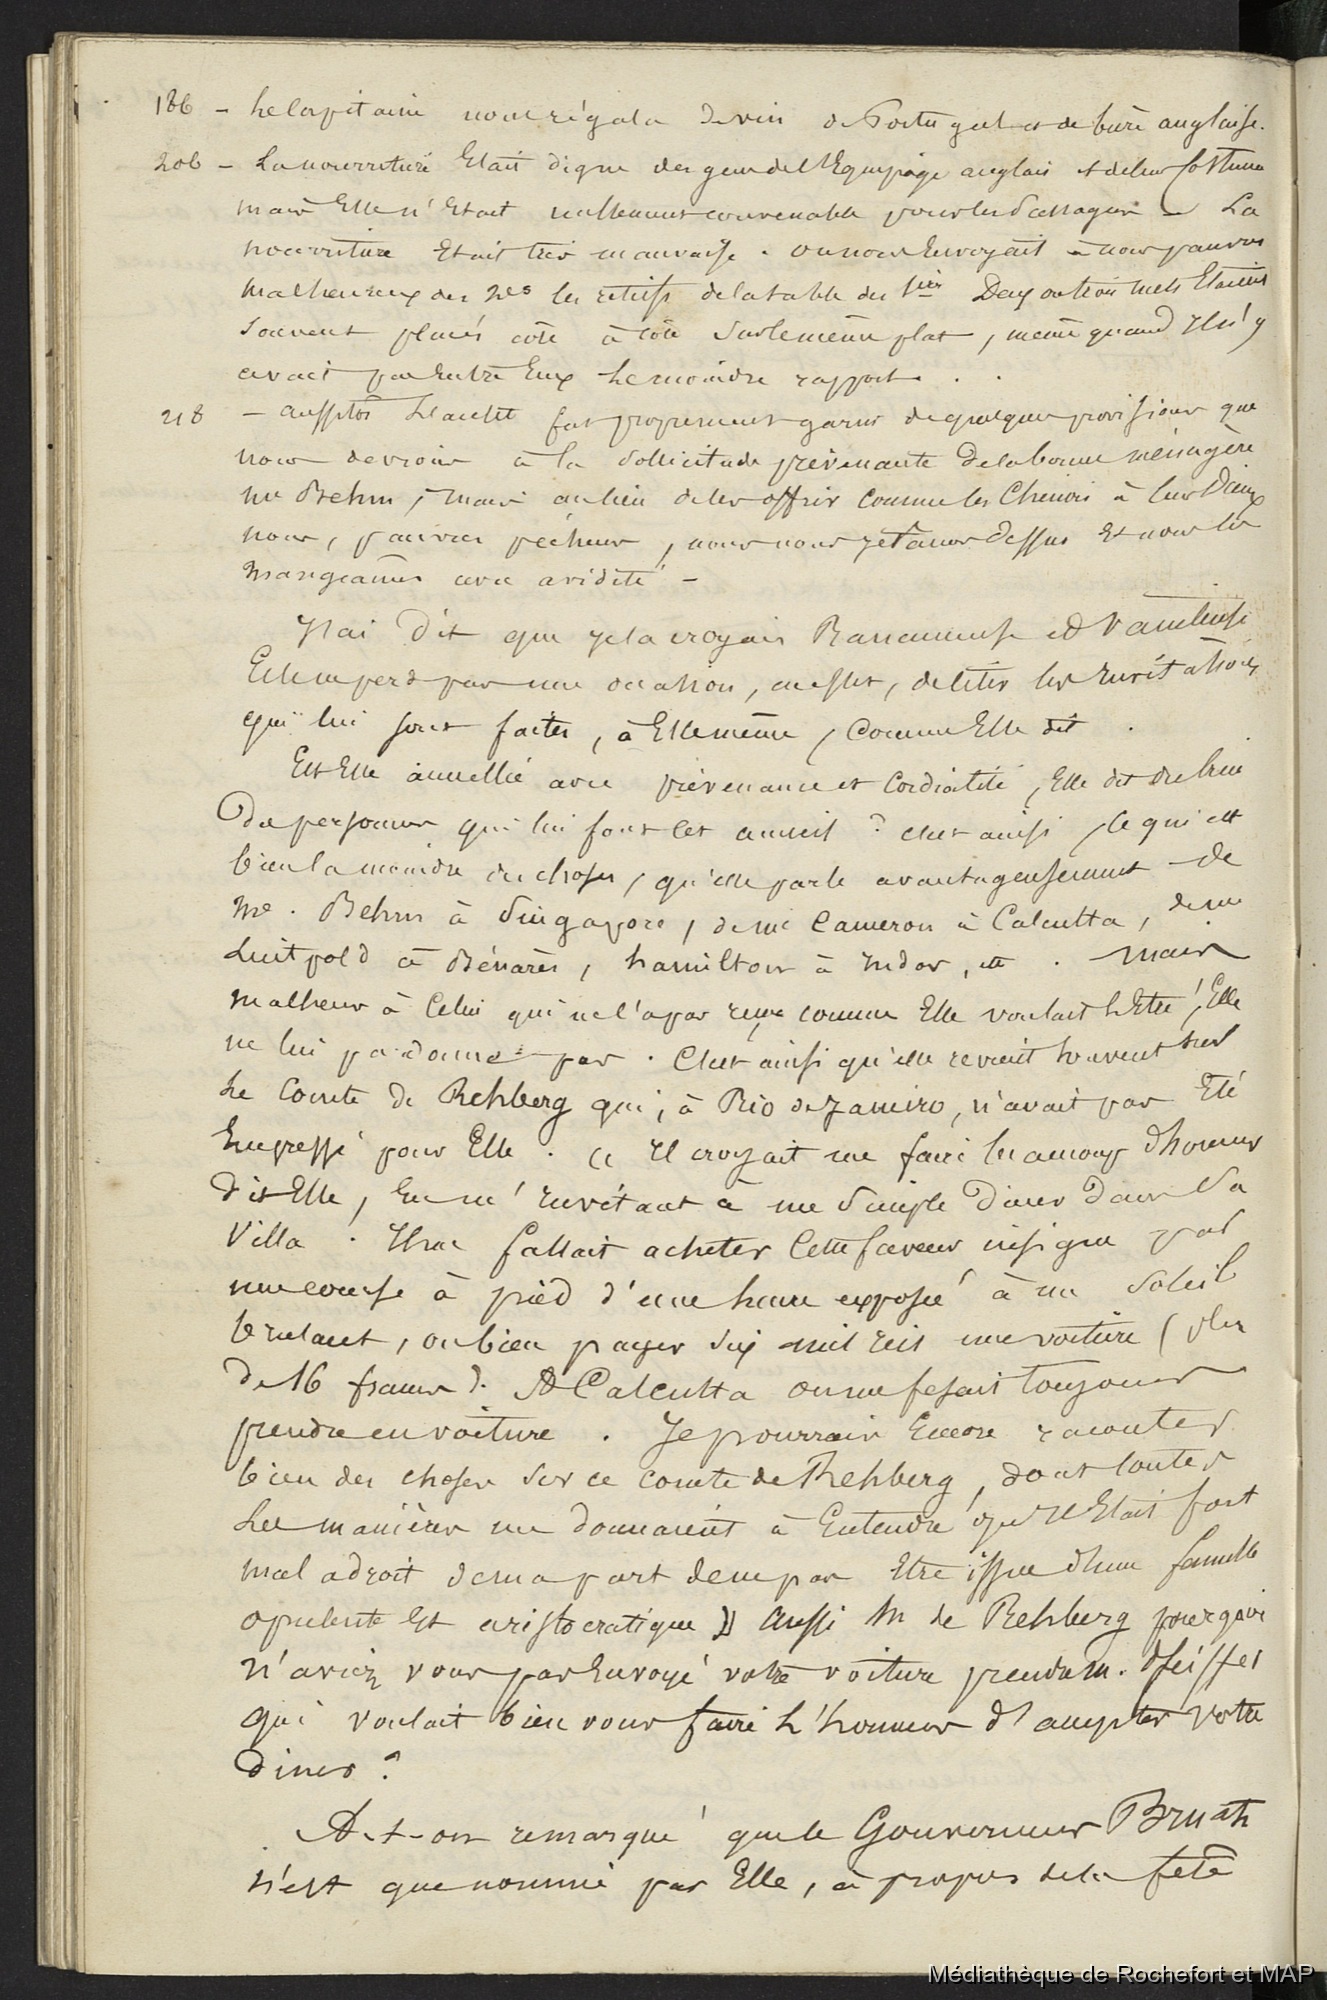 186 – Le Capitaine nous régala de vin de Portugal et de bière anglaise.
206 – La nourriture Etait digne des gens de l'Equipage anglais et de leur costume
mais Elle n'Etait nullement convenable pour les Passagers – La
nourriture Etait très mauvaise. on nous Envoyait à nous pauvres
malheureux des 2es les restes de la table des 1ières Deux ou trois mets Etaient
souvent placés côte à côte sur le même plat, même quand Il n'y
avait pas Entre Eux le moindre rapport . .
218 – aussitôt fut proprement garni de quelques provisions que
nous devions à la sollicitude prévenante de la bonne ménagère
me Behm, mais au lieu de les offrir comme les Chinois à leurs Dieux
nous, pauvres pécheurs, nous nous jetâmes dessus Et nous les
mangeâmes avec avidité –
J'ai dit que je la croyais Rancuneuse et Vaniteuse
Elle ne perd pas une occasion, en effet, de citer les Invitations
qui lui sont faites, à Elle même, comme Elle dit .
Est Elle accueillie avec prévenance et Cordialité, Elle dit du bien
des personnes qui lui font cet accueil ? c'est ainsi, ce qui est
bien la moindre des choses, qu'elle parle avantageusement de
Me. Behm à Singapore, de me Cameron à Calcutta, de me
Luitpold à Bénarès, hamilton à Indor, etc . mais
malheur à Celui qui ne l'a pas reçue comme Elle voulait l'Etre ! Elle
ne lui pardonne pas . C'est ainsi qu'elle revient souvent sur
Le Comte de Rehberg qui, à Rio de Janeiro, n'avait pas Eté
Empressé pour Elle . « Il croyait me faire beaucoup d'honneur
dit Elle, En m'Invitant à un Simple Diner dans Sa
Villa . Il me fallait acheter Cette faveur insigne par
une course à pied d'une heure exposée à un Soleil
brulant, ou bien payer six mil reis une voiture (plus
de 16 francs). A Calcutta on me fesait toujours
prendre en voiture . Je pourrais Encore raconter
bien des choses sur ce comte de Rehberg, dont toutes
Les manières me donnaient à Entendre qu'Il Etait fort
mal adroit de ma part de ne pas Etre issue d'une famille
opulente Et aristocratique » aussi M de Rehberg pourquoi
n'aviez vous pas Envoyé votre voiture prendre M. Pfeiffer
qui voulait bien vous faire L'honneur d'accepter votre
diner ?
A-t-on remarqué que le Gouverneur Bruat
n'est que nommé par Elle, à propos de la fête
Médiathèque de Rochefort et MAP